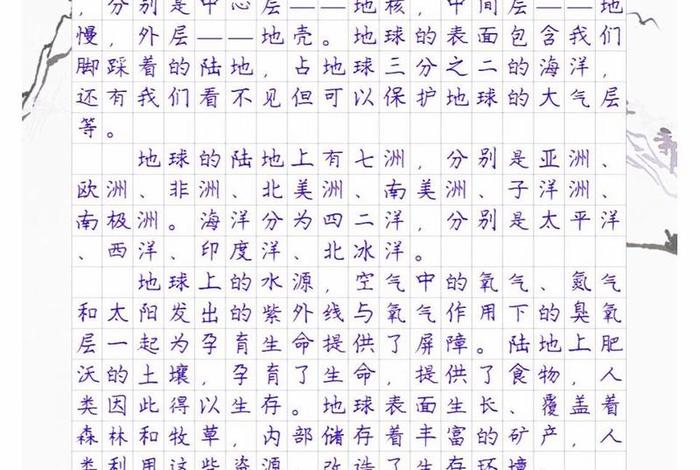 ，分别是中心层——地核，中间层——地
慢，外层——地壳。地球的表面包含我们
脚踩着的陆地，占地球三分之二的海洋，
还有我们看不见但可以保护地球的大气层
等。
地球的陆地上有七洲，分别是亚洲、
欧洲、非洲、北美洲、南美洲、子洋洲、
南极洲。海洋分为四二洋，分别是太平洋
、西洋、印度洋、北冰洋。
地球上的水源，空气中的氧气、氮气
和太阳发出的紫外线与氧气作用下的臭氧
层一起为孕育生命提供了屏障。陆地上肥
沃的土壤，孕育了生命，提供了食物，人
类因此得以生存。地球表面生长、覆盖着
森林和牧草，内部储存着丰富的矿产，人
类利用这些资源，改造了生存环境